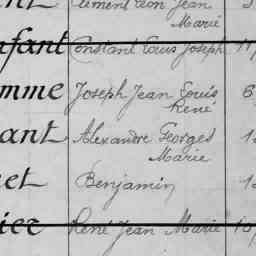 Clément Léon Jean
Marié
nfant Constant Louis Joseph 11
omme Joseph Jean Louis 6
René
ant Alexandre Georges 1
Marie
et Benjamin 1
ier René Jean Marie 10